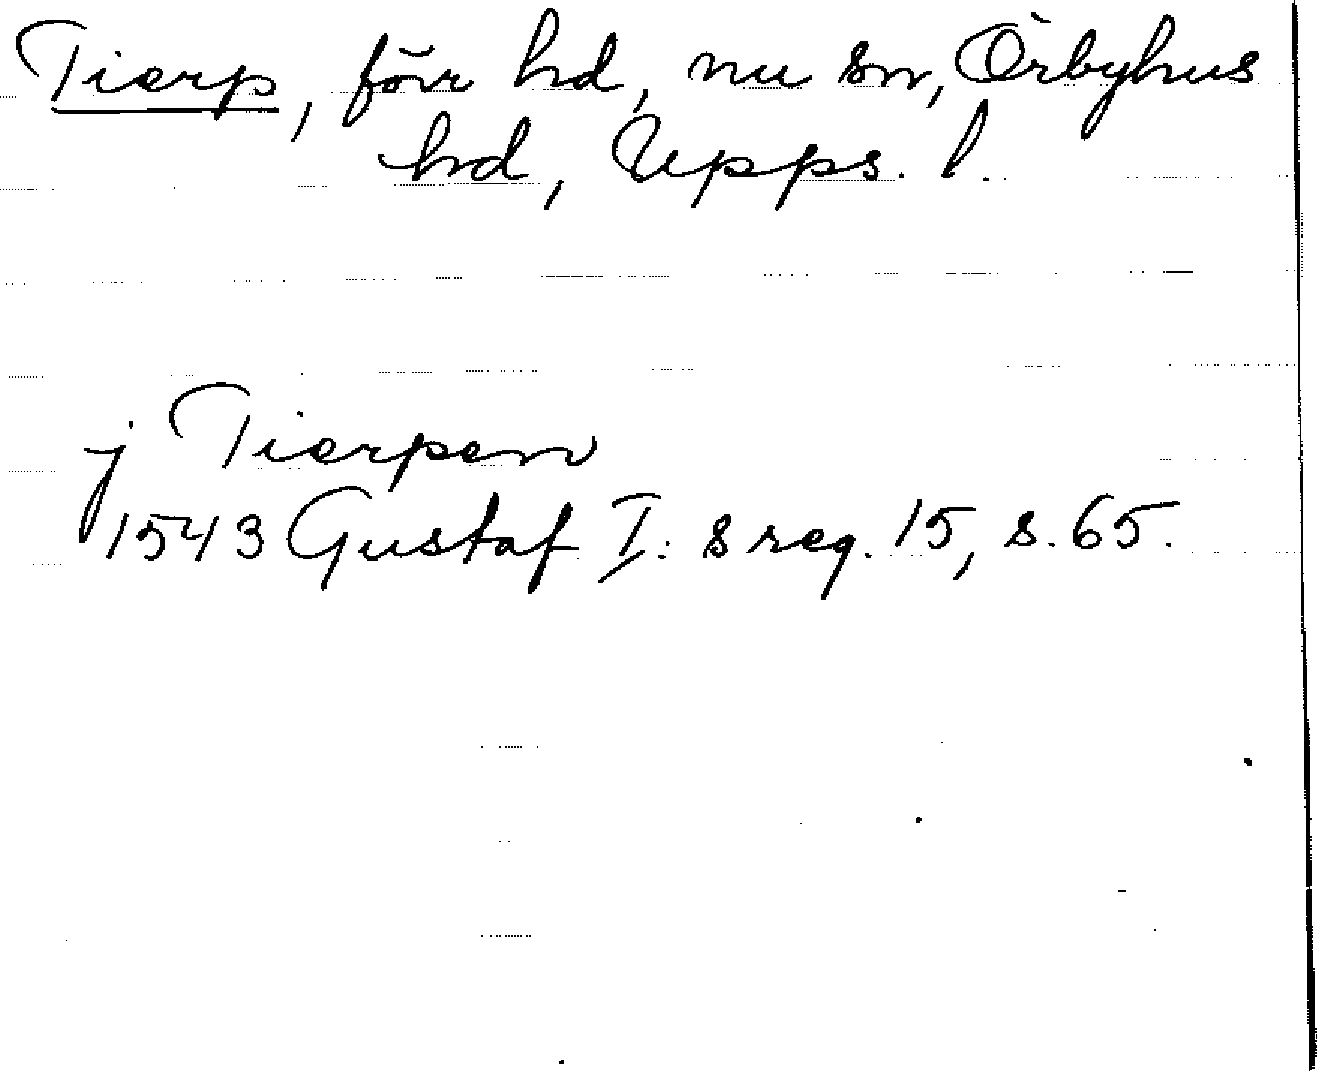 Tierp, förr hd, nu sn, Örbyhus
hd, Upps. l.
j Tierpom
1543 Gustaf I:s reg. 15, s. 65.